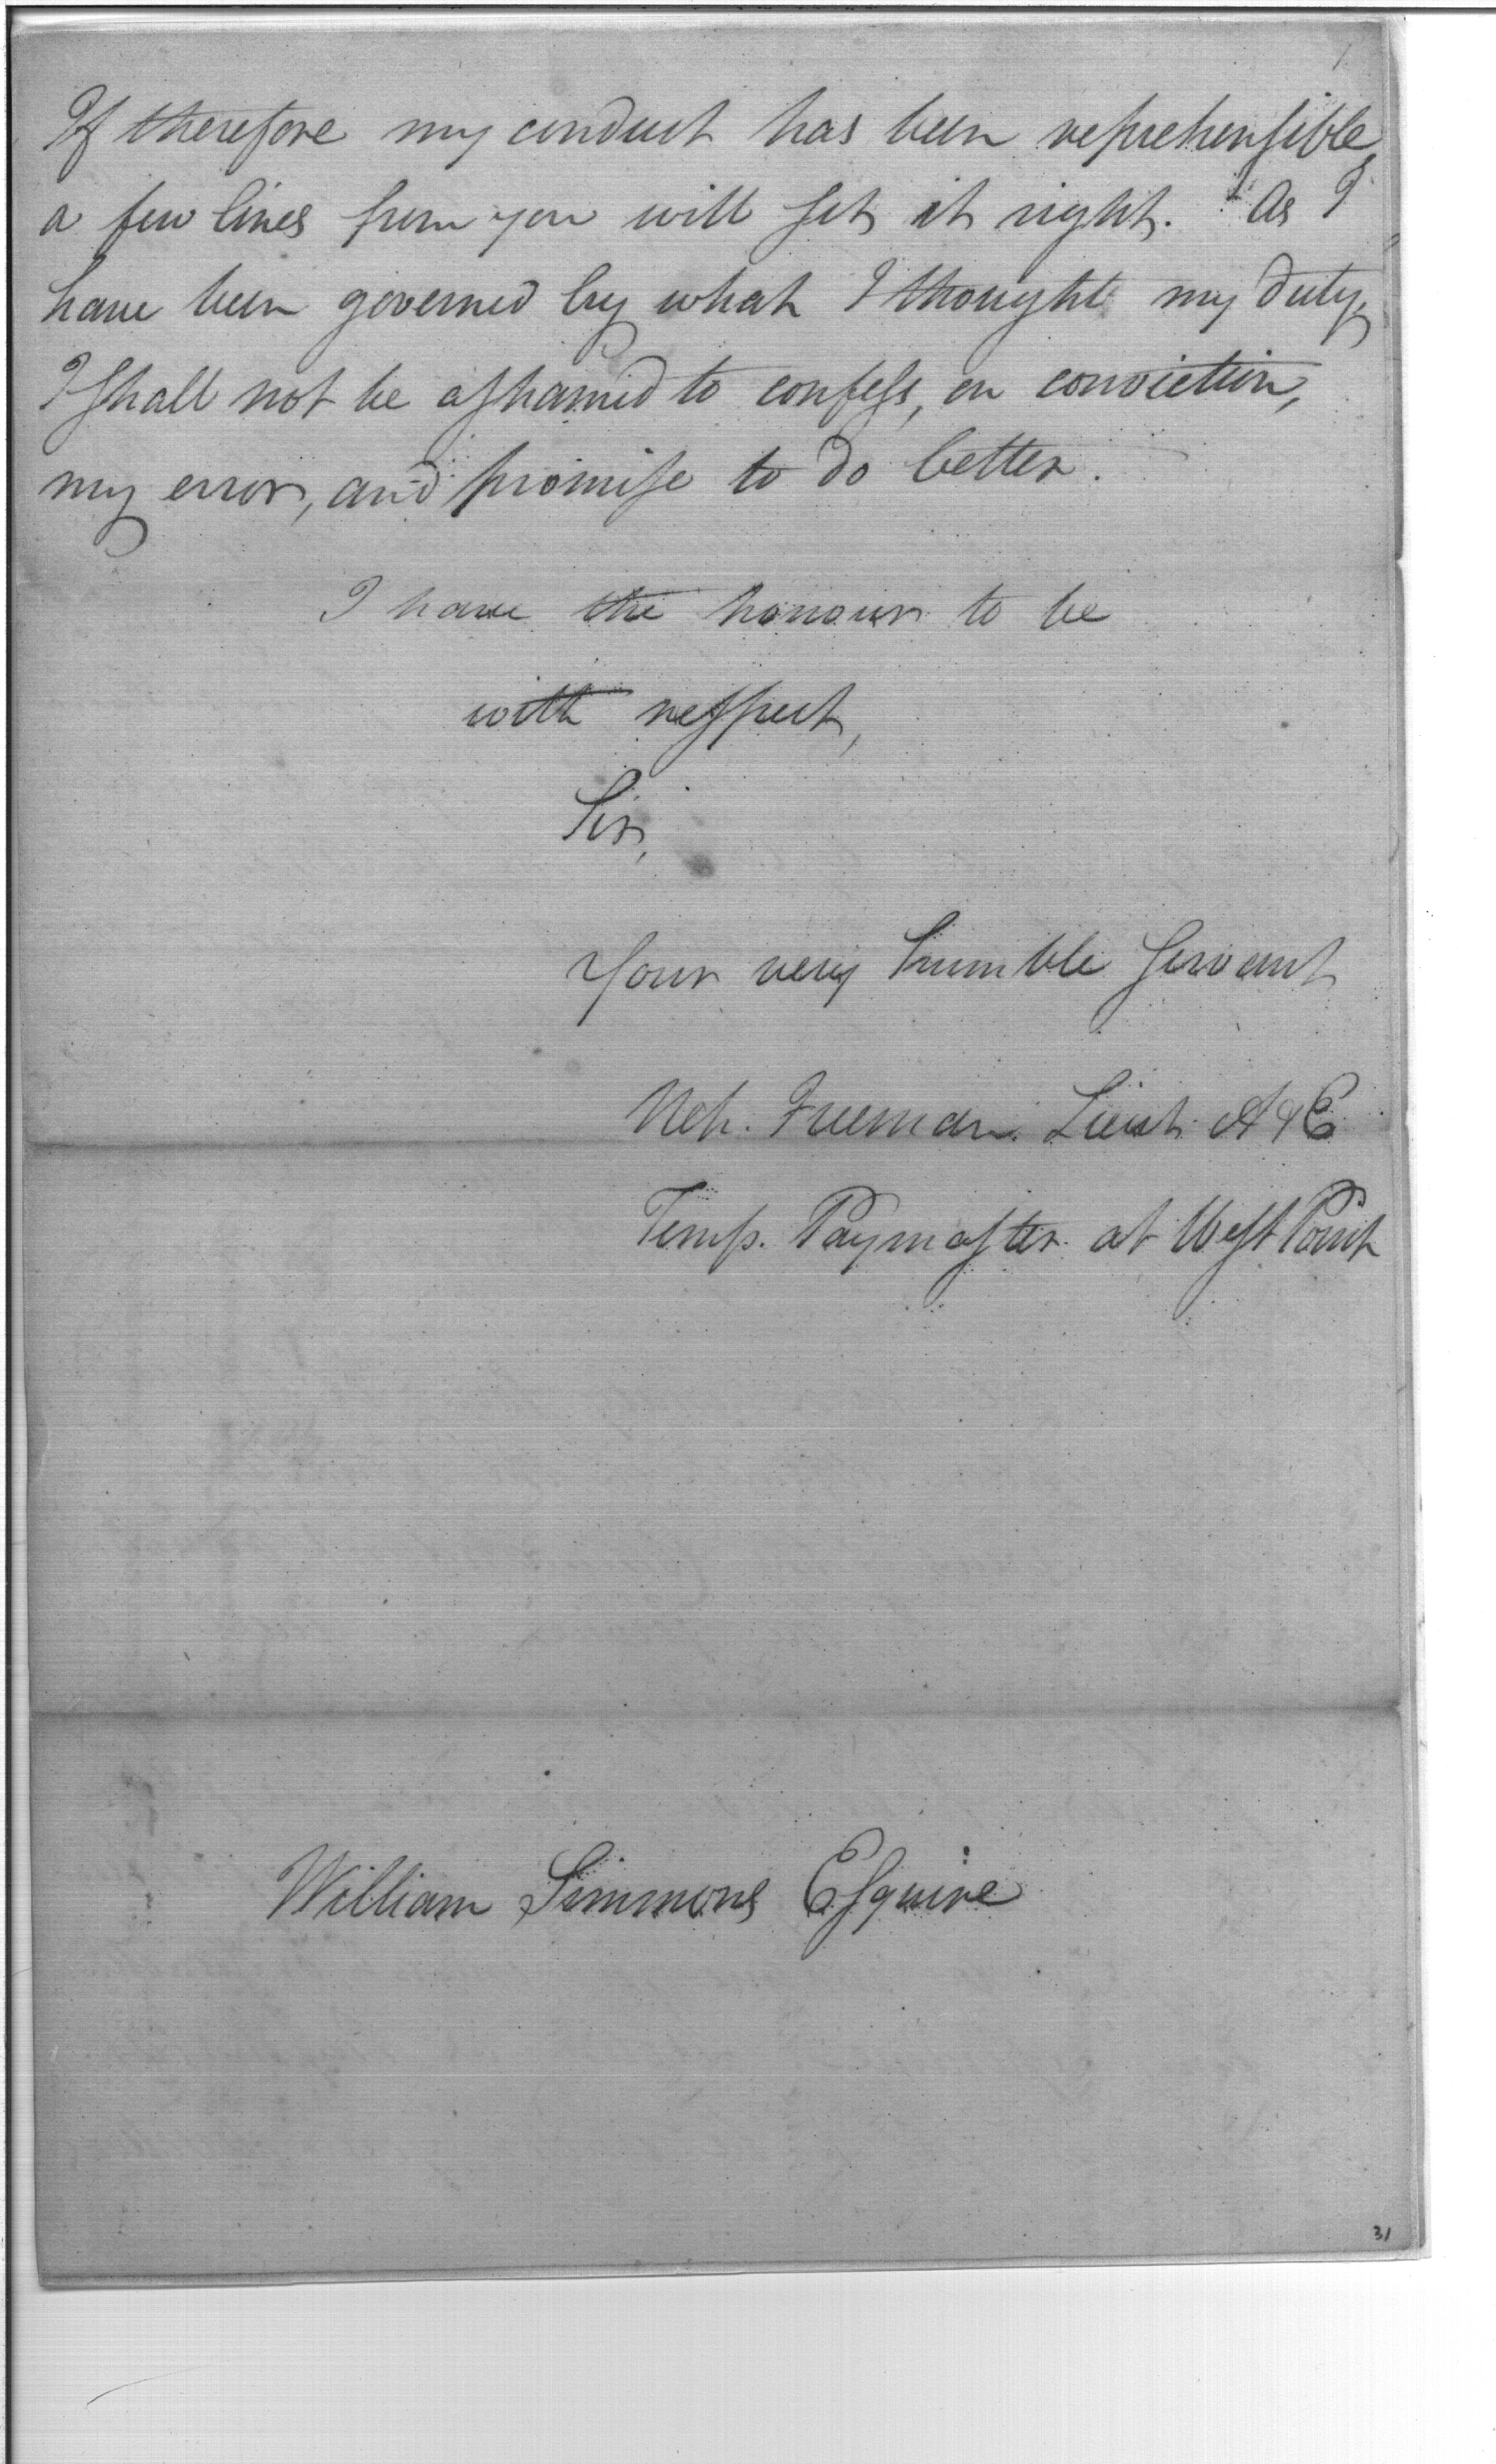 If therefore my conduct has been reprehensible,
a few lines from you will set it right. As I
have been governed by what I thought my duty,
I shall not be ashamed to confess, on conviction,
my error, and promise to do better.
I have the honour to be
with respect,
Sir,
Your very humble servant
Neh. Freeman Lieut. A & E
Temp. Paymaster at West Point
William Simmons Esquire
31